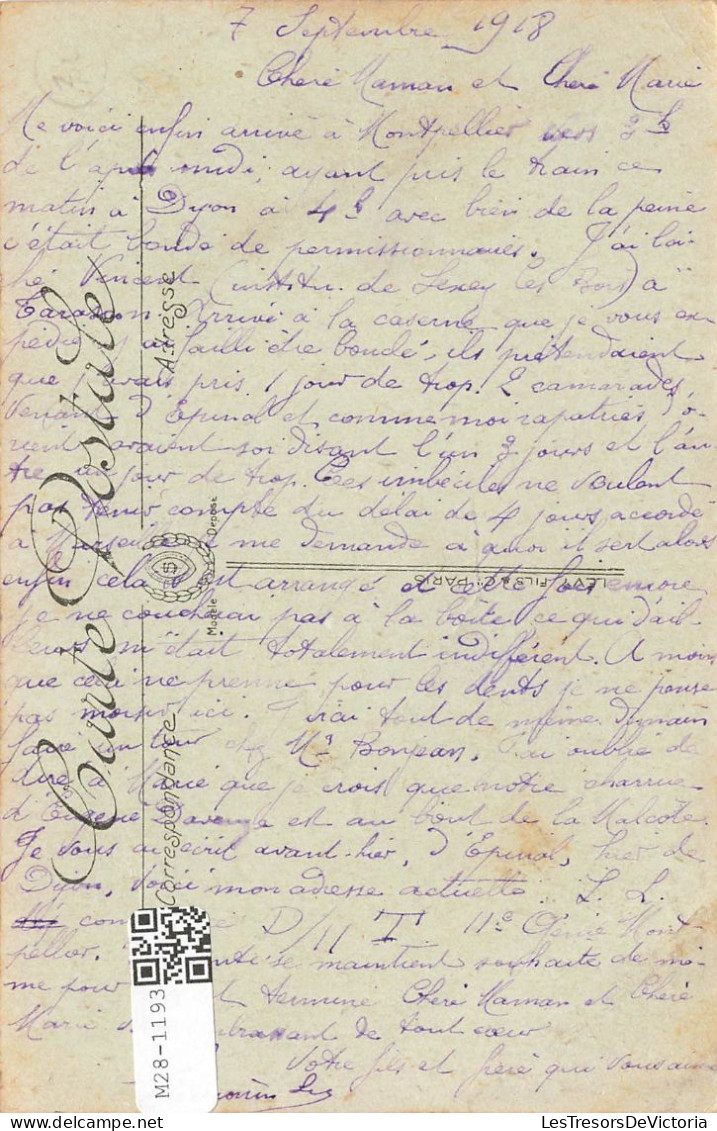 7 Septembre 1918
Cheré Maman et Cheré Marie
Me voici enfin arrivé à Montpellier vers 3 h
de l'après midi, ayant pris le train ce
matin à Dyon à 4 h avec bien de la peine
c'était bondé de permissionnaires. J'ai lais-
sé Vincent (institu. de Sexey les Bois) à
Tarascon. Arrivé à la caserne que je vous ex-
pédie j'ai failli être bouclé, ils prétendaient
que j'avais pris 1 jour de trop. 2 camarades,
venant d'Epinal et comme moi rapatriés d'o-
rient avaient soi disant l'un 3 jours et l'au-
tre un jour de trop. Ces imbéciles ne voulant
pas tenir compte du délai de 4 jours accordé
à Marseille me demande à quoi il sert alors
enfin cela s'est arrangé et cette fois encore
je ne coucherai pas à la boîte ce qui d'ail-
leurs m'était totalement indifférent. A moins
que cela ne prenne pour les dents je ne pense
pas moisir ici. J'irai tout de même demain
faire un tour chez Mr Bonjean. J'ai oublié de
dire à Marie que je crois que notre charrue
d'Eugène est au bout de la Malcôte.
Je vous ai écrit avant-hier, d'Epinal, hier de
Dyon, voici mon adresse actuelle. S. L.
D/11 T 11e Génie Mont
pellier. se maintient souhaite de mê-
me pour termine Cheré Maman et Cheré
Marie embrassant de tout cœur
Votre fils et frère qui vous aime
Carte Postale
Correspondance
Adresse
Modèle Déposé
LEVY FILS & Cie PARIS
M28-1193
LesTresorsDeVictoria